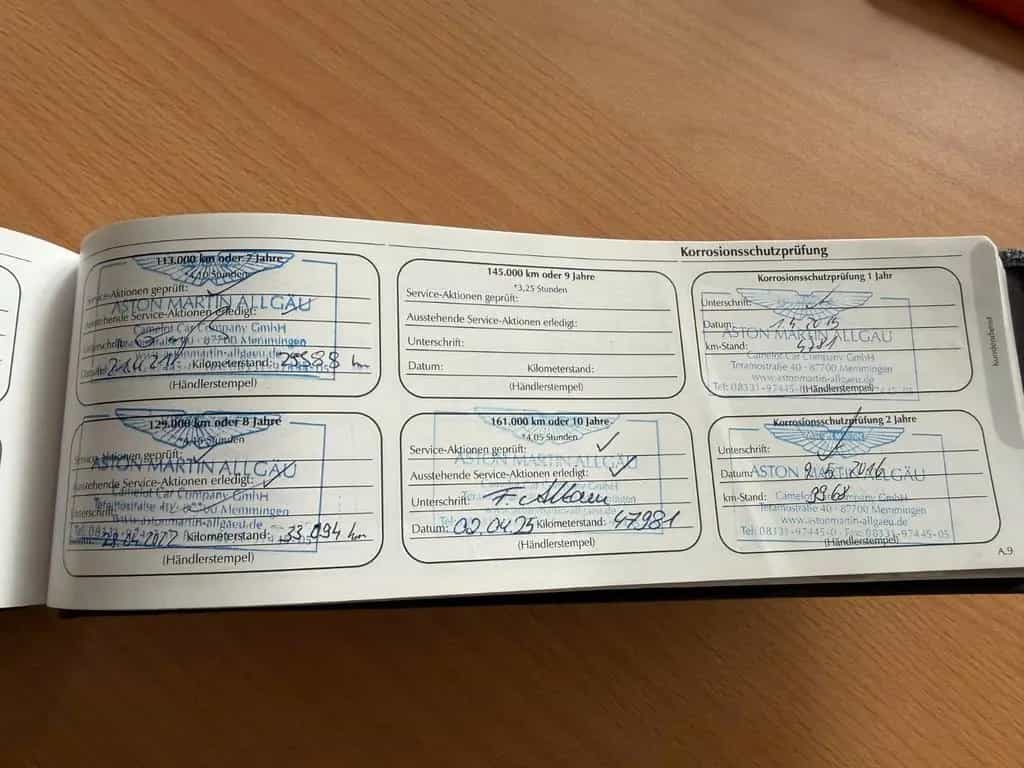 Korrosionsschutzprüfung
113.000 km oder 7 Jahre
*4,10 Stunden
Service-Aktionen geprüft:
ASTON MARTIN ALLGÄU
Ausstehende Service-Aktionen erledigt:
Camelot Car Company GmbH
Unterschrift:
87700 Memmingen
www.astonmartin-allgaeu.de
Kilometerstand: 25588 km
(Händlerstempel)
129.000 km oder 8 Jahre
Stunden
Service-Aktionen geprüft:
ASTON MARTIN ALLGÄU
Ausstehende Service-Aktionen erledigt:
Camelot Car Company GmbH
87700 Memmingen
Unterschrift:
www.astonmartin-allgaeu.de
Kilometerstand: 33.094 km
(Händlerstempel)
145.000 km oder 9 Jahre
*3,25 Stunden
Service-Aktionen geprüft:
Ausstehende Service-Aktionen erledigt:
Unterschrift:
Datum: Kilometerstand:
(Händlerstempel)
161.000 km oder 10 Jahre
*4,05 Stunden
Service-Aktionen geprüft:
ASTON MARTIN ALLGÄU
Ausstehende Service-Aktionen erledigt:
Unterschrift:
Datum: 02.04.25 Kilometerstand: 47981
(Händlerstempel)
Korrosionsschutzprüfung 1 Jahr
Unterschrift:
Datum: 2015
ASTON MARTIN ALLGÄU
km-Stand:
Camelot Car Company GmbH
Teramostraße 40 - 87700 Memmingen
www.astonmartin-allgaeu.de
Tel: 08331-97445-
(Händlerstempel)
Korrosionsschutzprüfung 2 Jahre
Unterschrift:
Datum: 2016
ASTON MARTIN ALLGÄU
km-Stand: 9968
Camelot Car Company GmbH
Teramostraße 40 - 87700 Memmingen
www.astonmartin-allgaeu.de
Tel: 08331-97445-0 - Fax: 08331-97445-05
(Händlerstempel)
Kundendienst
A.9